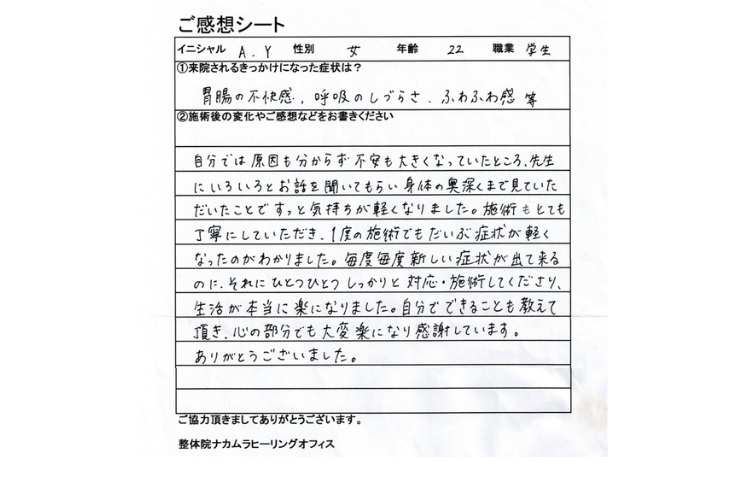 ご感想シート
イニシャル A.Y 性別 女 年齢 22 職業 学生
①来院されるきっかけになった症状は？
胃腸の不快感、呼吸のしづらさ、ふわふわ感 等
②施術後の変化やご感想などをお書きください
自分では原因も分からず不安も大きくなっていたところ、先生
にいろいろとお話を聞いてもらい身体の奥深くまで見ていた
だいたことですっと気持ちが軽くなりました。施術もとても
丁寧にしていただき、1度の施術でもだいぶ症状が軽く
なったのがわかりました。毎度毎度新しい症状が出て来る
のに、それにひとつひとつしっかりと対応・施術してくださり、
生活が本当に楽になりました。自分でできることも教えて
頂き、心の部分でも大変楽になり感謝しています。
ありがとうございました。
ご協力頂きましてありがとうございます。
整体院ナカムラヒーリングオフィス